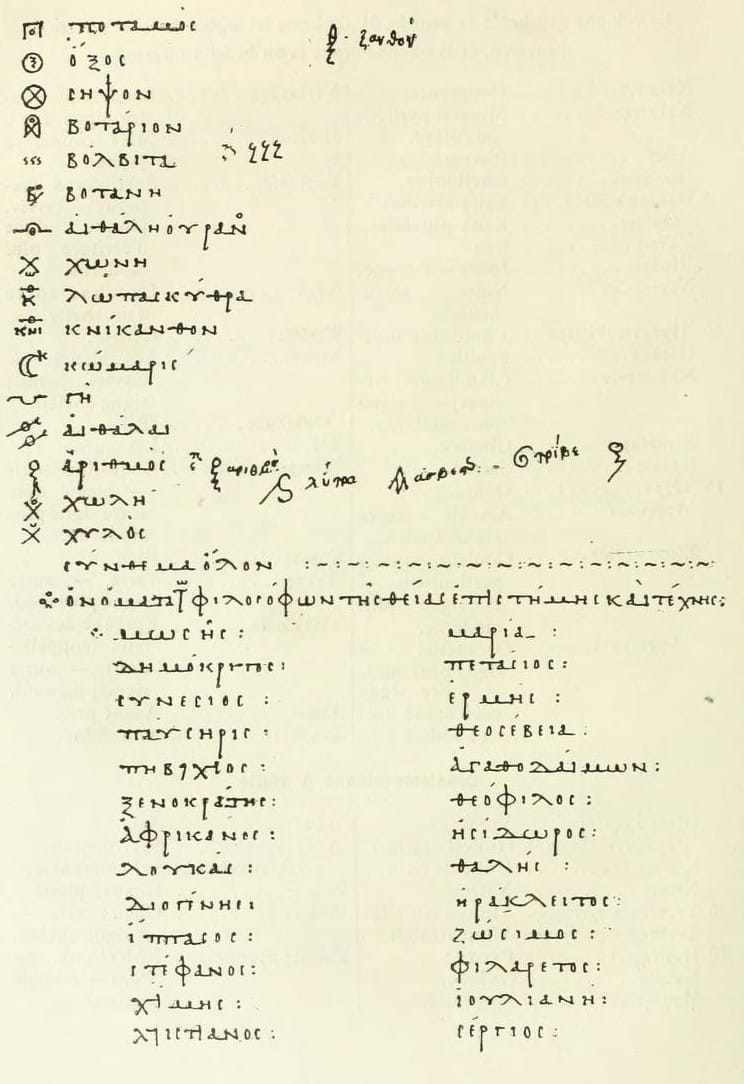 ποταμός ξανθόν
ὄξος
σηψον
βοτάριον
βόλβιτα
βοτάνη
αἰθάλη οὐραν
χώνη
λωπας κύθρα
κνίκανθον
κώμαρις
γῆ
αἰθάλαι
ἀριθμός ἀριθμὸς λύτρα
χωλή
χυλὸς
σύνθεμα ὅλον
ὀνόματα τῶν φιλοσόφων τῆς θείας ἐπιστήμης καὶ τέχνης:
μωσῆς: μαρία:
δημόκριτος: πετάσιος:
συνέσιος: ἑρμῆς:
παύσηρις: θεοσέβεια:
πηβήχιος: ἀγαθοδαίμων:
ξενοκράτης: θεόφιλος:
ἀφρικανός: ἡσίδωρος:
λουκᾶς: θαλῆς:
διογένης: ἡράκλειτος:
ἵππασος: ζώσιμος:
στέφανος: φιλάρετος:
χίμης: ἰουλιανή:
χριστιανός: σέργιος: